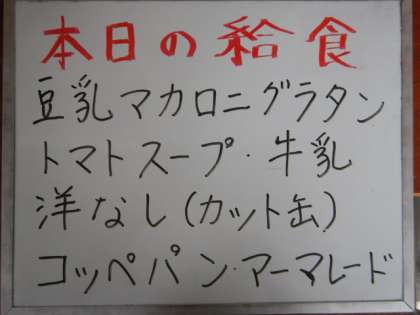 本日の給食
豆乳マカロニグラタン
トマトスープ・牛乳
洋なし(カット缶)
コッペパン・アーマレード